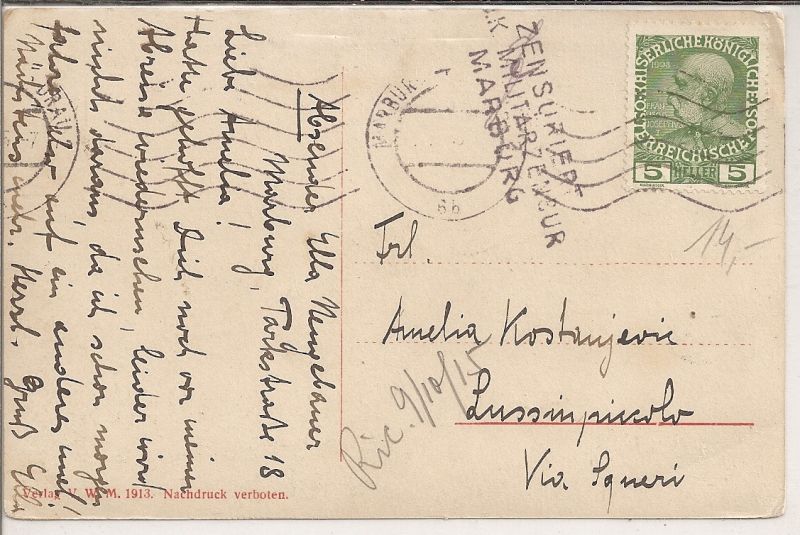 Absender Ella Neugebauer
Marburg, Parkstraße 18
Liebe Amelia!
Hatte gehofft Dich noch vor meiner
Abreise wiederzusehen, leider wird
nichts daraus, da ich schon morgen
fahre. Also auf ein anderes mal!
mehr. Herzl. Gruß Ella
Verlag V. W. M. 1913. Nachdruck verboten.
DRAU
MARBUR
6b
ZENSURIERT
K.u.K. MILITÄRZENSUR
MARBURG
KAISERLICHE KÖNIGLICHE
ÖSTERREICHISCHE
1908
5 HELLER 5
14,-
Frl.
Amelia Kostanjevic
Lussinpiccolo
Via Squeri
Ric. 9/10/15